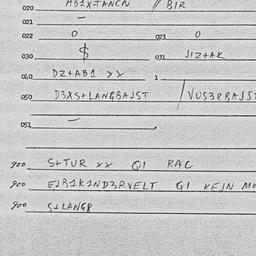 020 AB1XTANCN // BIR
021 —
022 0 023 0
030 $ 031 JIZ+AK
040 DZ+AB1 >>
050 D3XS+LANGBAJST / VUS3PBAJST
052 —
900 S+TUR xx Q1 RAC
900 EJB1K1ND3RVELT Q1 KEJN
900 S+LANG8